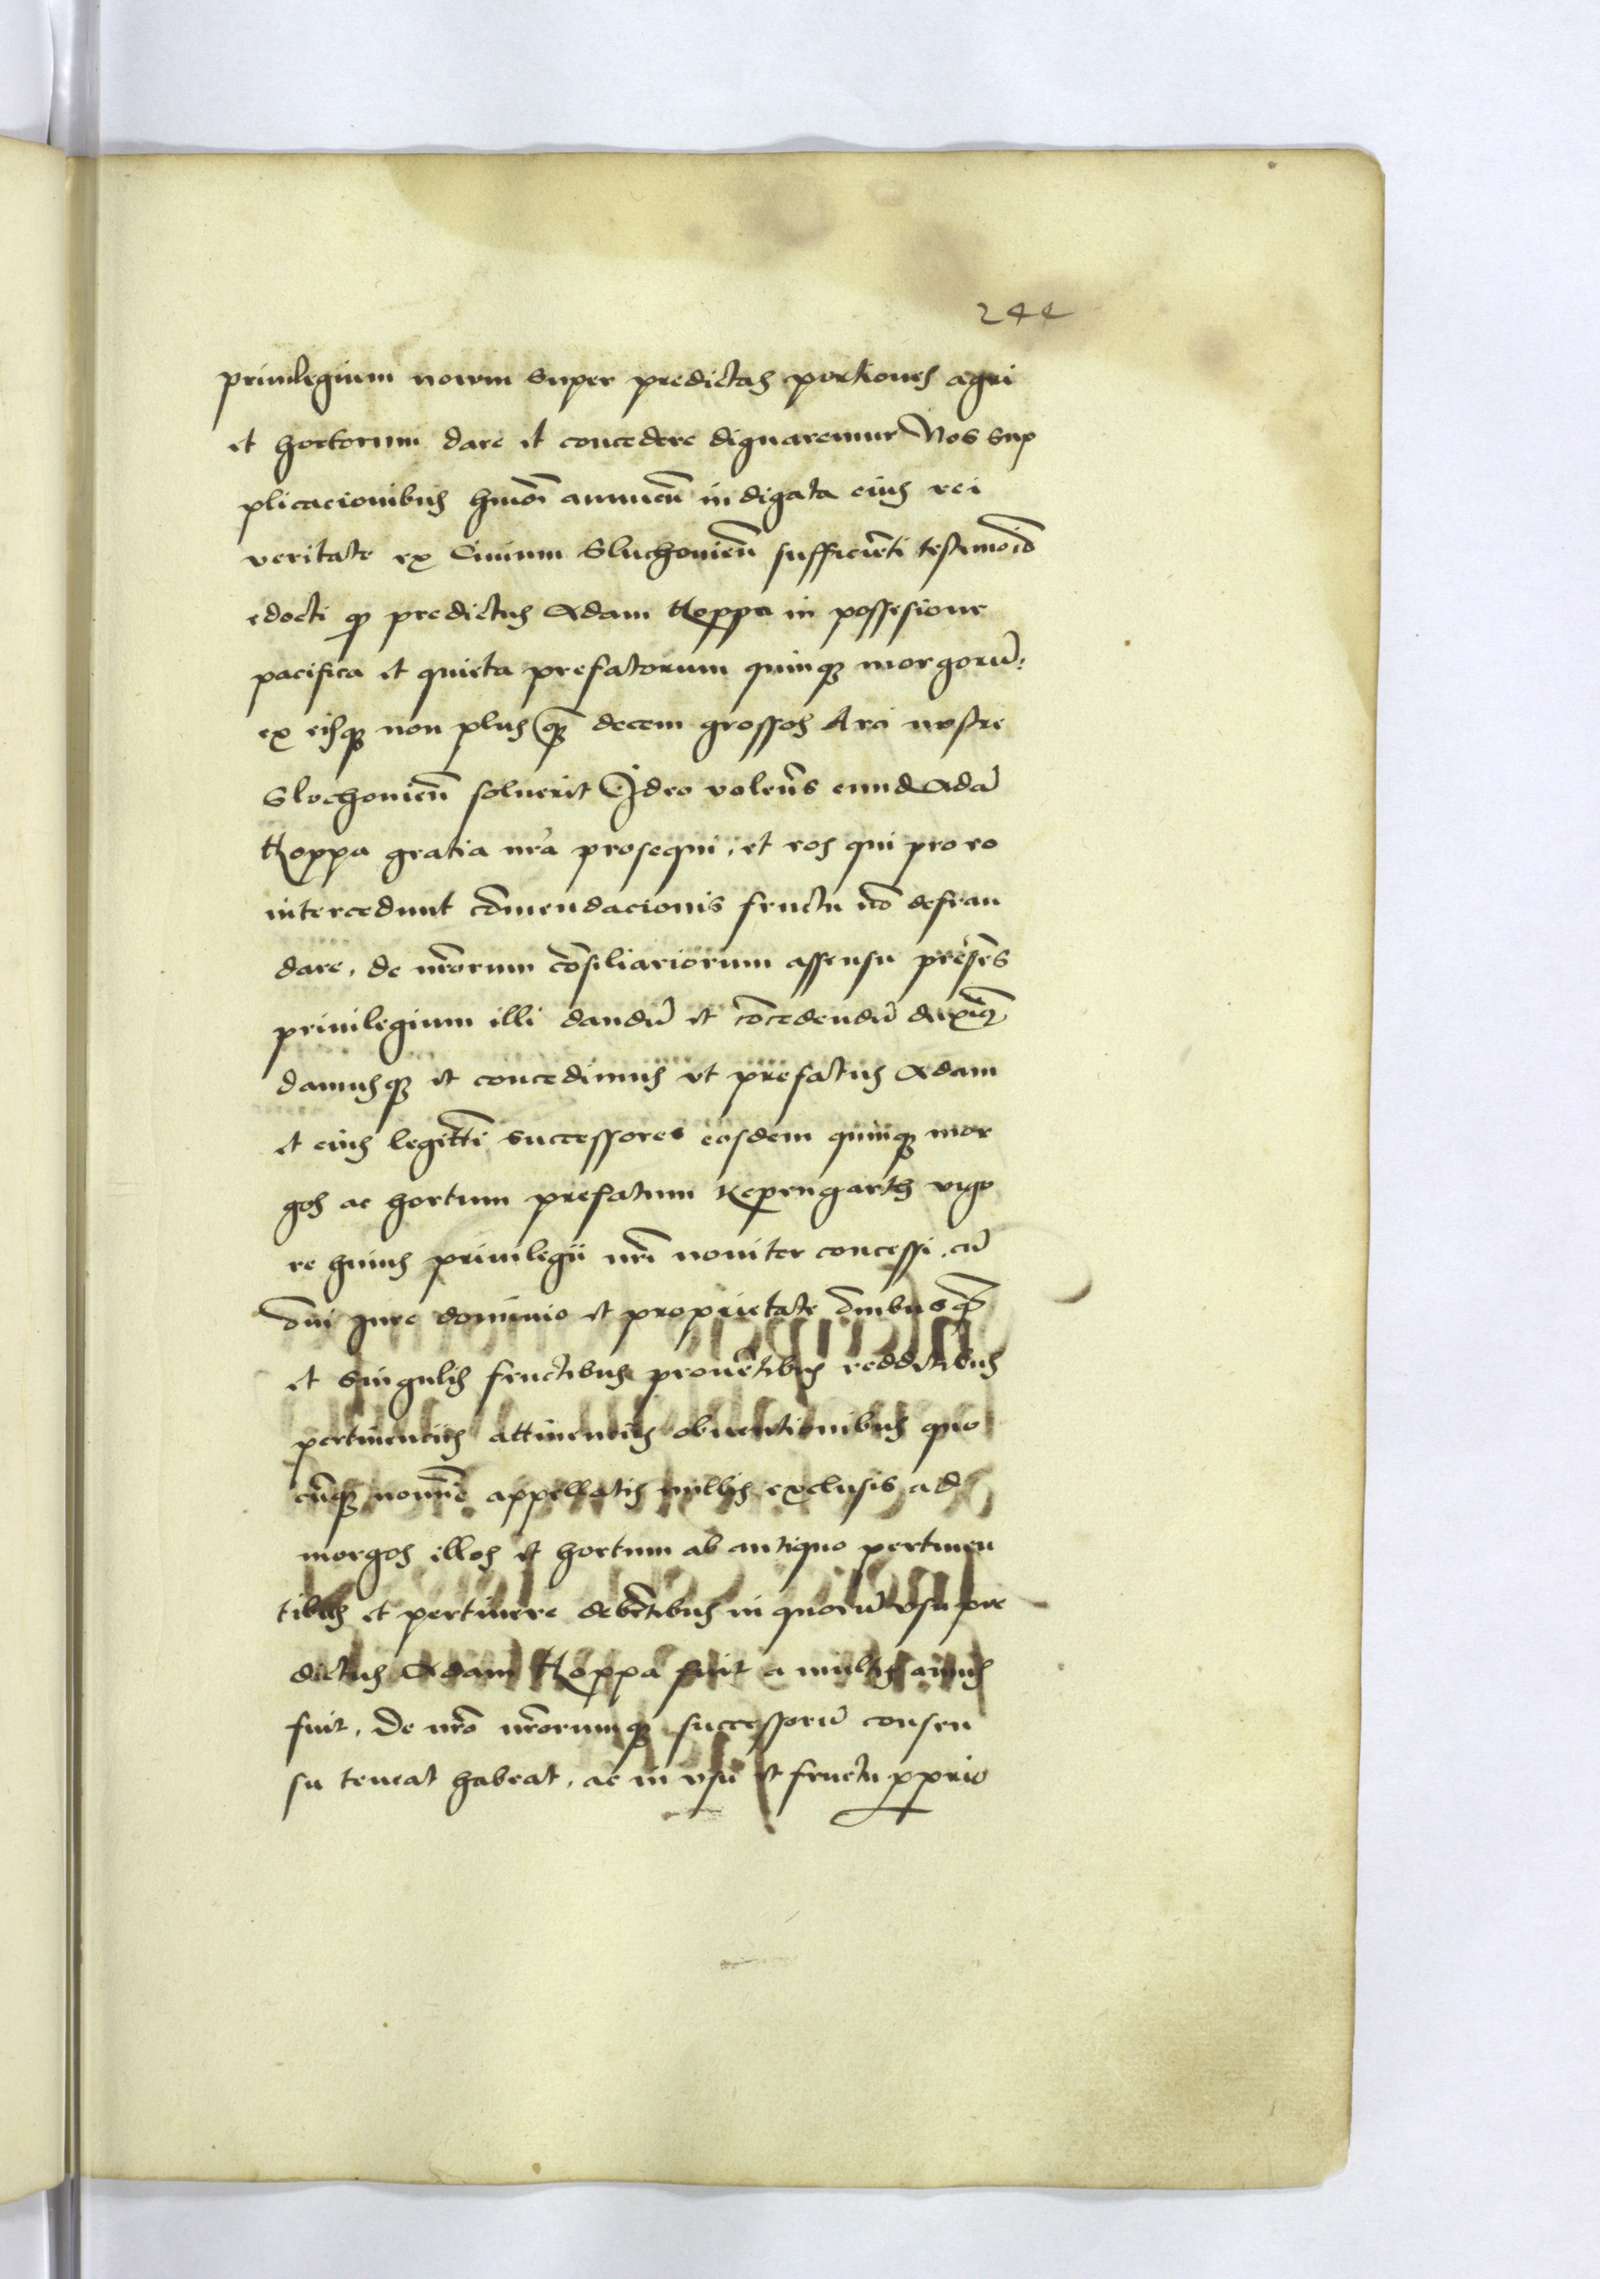 244
priuilegium nowm super predictas portiones agri
et hortorum dare et concedere dignaremur Nos sup
plicacionibus hmōi annuen̄ indigata eius rei
veritate ex Ciuium Sluchouien̄ sufficiēti testimoīo
edocti qꝫ predictus Adam Koppa in possesione
pacifica et quieta prefatorum quinqꝫ morgorū:
ex eisqꝫ non plus qꝫ decem grossos Arci nostre
Slochouien̄ soluerit Ideo volen̄s eund Adā
Koppa gratia nrā prosequi, et eos qui pro eo
intercedunt cōmendacionis fructu nō defrau
dare, de nrōrum cōsiliariorum assensu presēs
priuilegium illi dandū et cōcedendū duximꝫ
damusqꝫ et concedimus vt prefatus Adam
et eius legitti successores eosdem quinqꝫ mor
gos ac hortum prefatum Keperngarth vigo
re huius priuilegii nrī nouiter concessi, cū
ōni iure dominio et proprietate ōmibusqꝫ
et singulis fructibus prouētibus redditibus
pertinenciis attinenciis obuentionibus quo
cūqꝫ nomīe appellatis nullis exclusis ad
morgos illos et hortum ab antiquo pertinen
tibus et pertinere debētibus in quorū vsu pre
dictus Adam Koppa fuit a multis annis
fuit, de nrō nrōrumqꝫ successorū consen
su teneat habeat, ac in vsū et fructu ꝓprio